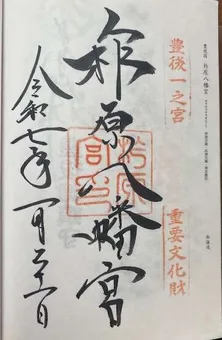 柞原八幡宮
豊後一之宮
重要文化財
柞原八幡宮
令和七年一月二十一日